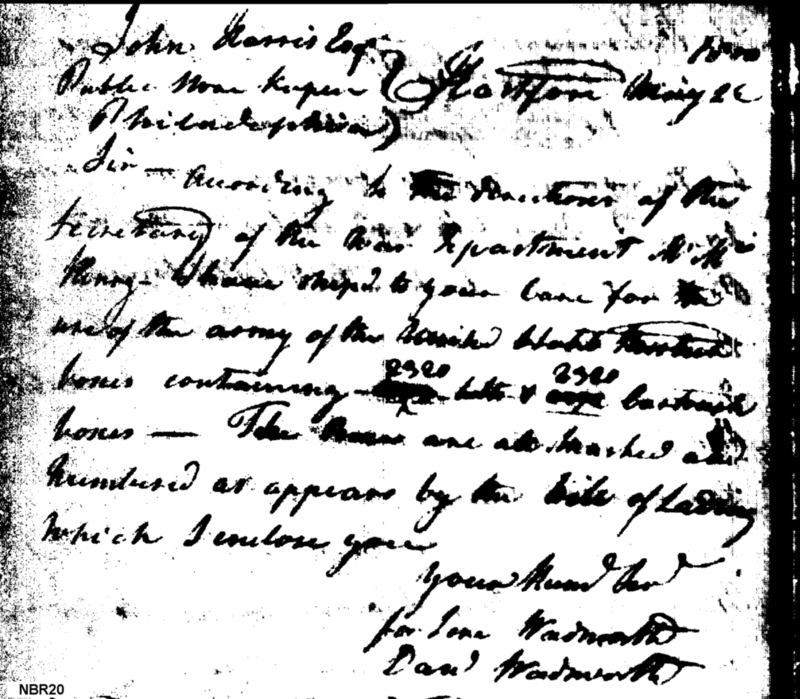 John Harris Esqr
Public Store Keeper Hartford May 26
Philadelphia
Sir — According to the directions of the
Secretary of the War Department Mr Mc
Henry - I have shipd to your care for the
use of the army of the United States
boxes containing 2320 belts & 2320 Cartouch
boxes — The Boxes are all Marked and
Numbered as appears by the Bill of Lading
which I enclose you
your Humb Sert
for Jere Wadsworth
Danl Wadsworth
NBR20